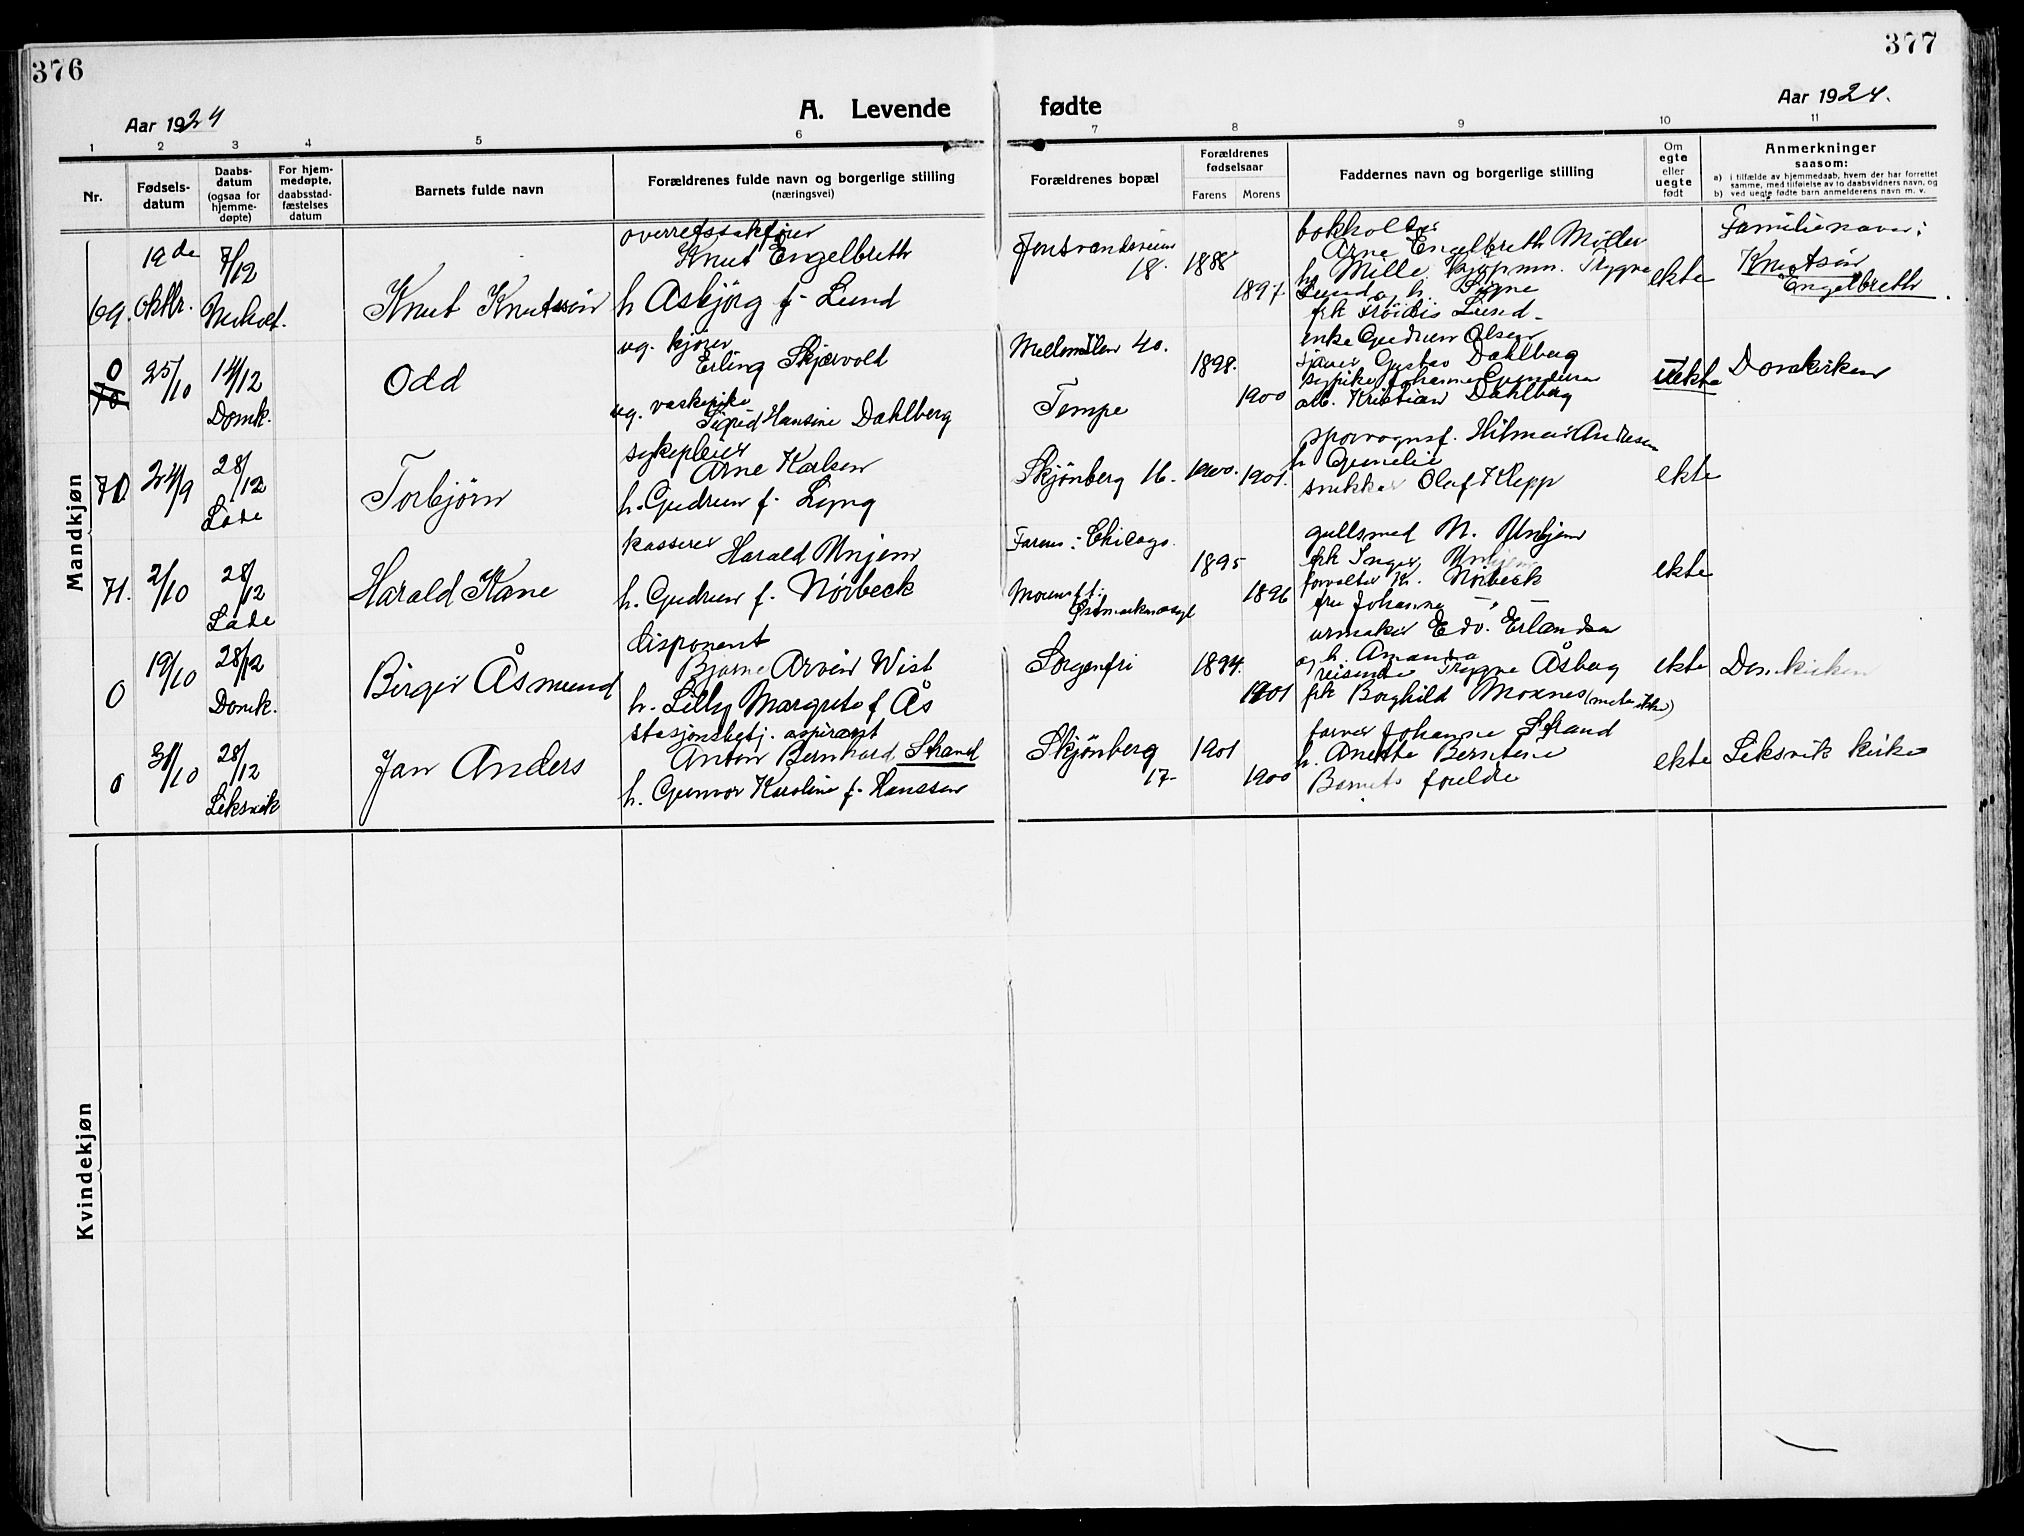 376
377
Aar 1924
A. Levende fødte
Aar 1924.
1 2 3 4 5 6 7 8 9 10 11
Nr.
Fødsels-
datum
Daabs-
datum
(ogsaa for
hjemme-
døpte)
For hjem-
medøpte,
daabsstad-
fæstelses
datum
Barnets fulde navn
Forældrenes fulde navn og borgerlige stilling
(næringsvei)
Forældrenes bopæl
Forældrenes
fødselsaar
Farens Morens
Faddernes navn og borgerlige stilling
Om
egte
eller
uegte
født
Anmerkninger
saasom:
a) i tilfælde av hjemmedaab, hvem der har forrettet
samme, med tilføielse av to daabsvidners navn, og
b) ved uegte fødte barn anmelderens navn m. v.
Mandkjøn
69. 19de oktbr.
7/12
Knut Knutssön
Knut Engelbreth
h Asbjørg f. Lund
18. 1888
1897.
bokholder
Arne Engelbreth Møller
kjøpmn. Trygve
Lund
ekte
Familienavn:
Knutsön
Engelbreth.
0
70
25/10
14/12
Domk.
Odd
ug. kjører
Erling Skjervold
ug. vaskepike
Sigrid Hansine Dahlberg
40.
Tempe
1898.
1900
enke Gudrun Olsen
Gustav Dahlberg
Johanne
arb. Kristian Dahlberg
uekte
Domkirken
70
24/9
28/12
Lade
Torbjørn
sykepleier
Arne Karlsen
h. Gudrun f. Lyng
Skjønberg 16.
1900.
1901.
sporvognsf. Hilmar Andresen
h
snekker Olaf Klepp
ekte
71.
2/10
28/12
Lade
Harald Kane
kasserer
Harald Unjem
h. Gudrun f. Nørbeck
Farens: Chicago.
1895
1896
gullsmed N. Unjem
frk Inger Unjem
forvalter K. Nørbeck
fru Johanne — " —
ekte
0
19/10
28/12
Domk.
Birger Åsmund
disponent
Bjarne Arvid Wist
h. Lilly Margrete f Ås
Sorgenfri
1894.
1901
urmaker Edv. Erlandsen
og h. Amanda
reisende Trygve Åsberg
frk Borghild Moxnes
ekte
Domkirken
0
31/10
28/12
Leksvik
Jan Anders
stasjonsbetj. aspirant
Anton Bernhard Strand
h. Gunvor Karoline f. Hanssen
Skjønberg
17
1901
1900
Johannes Strand
h. Anette Berntine
Barnets foreldre
ekte
Leksvik kirke
Kvindekjøn